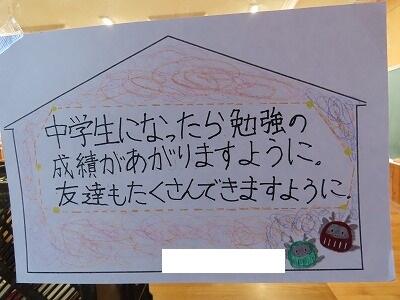 中学生になったら勉強の
成績があがりますように。
友達もたくさんできますように.